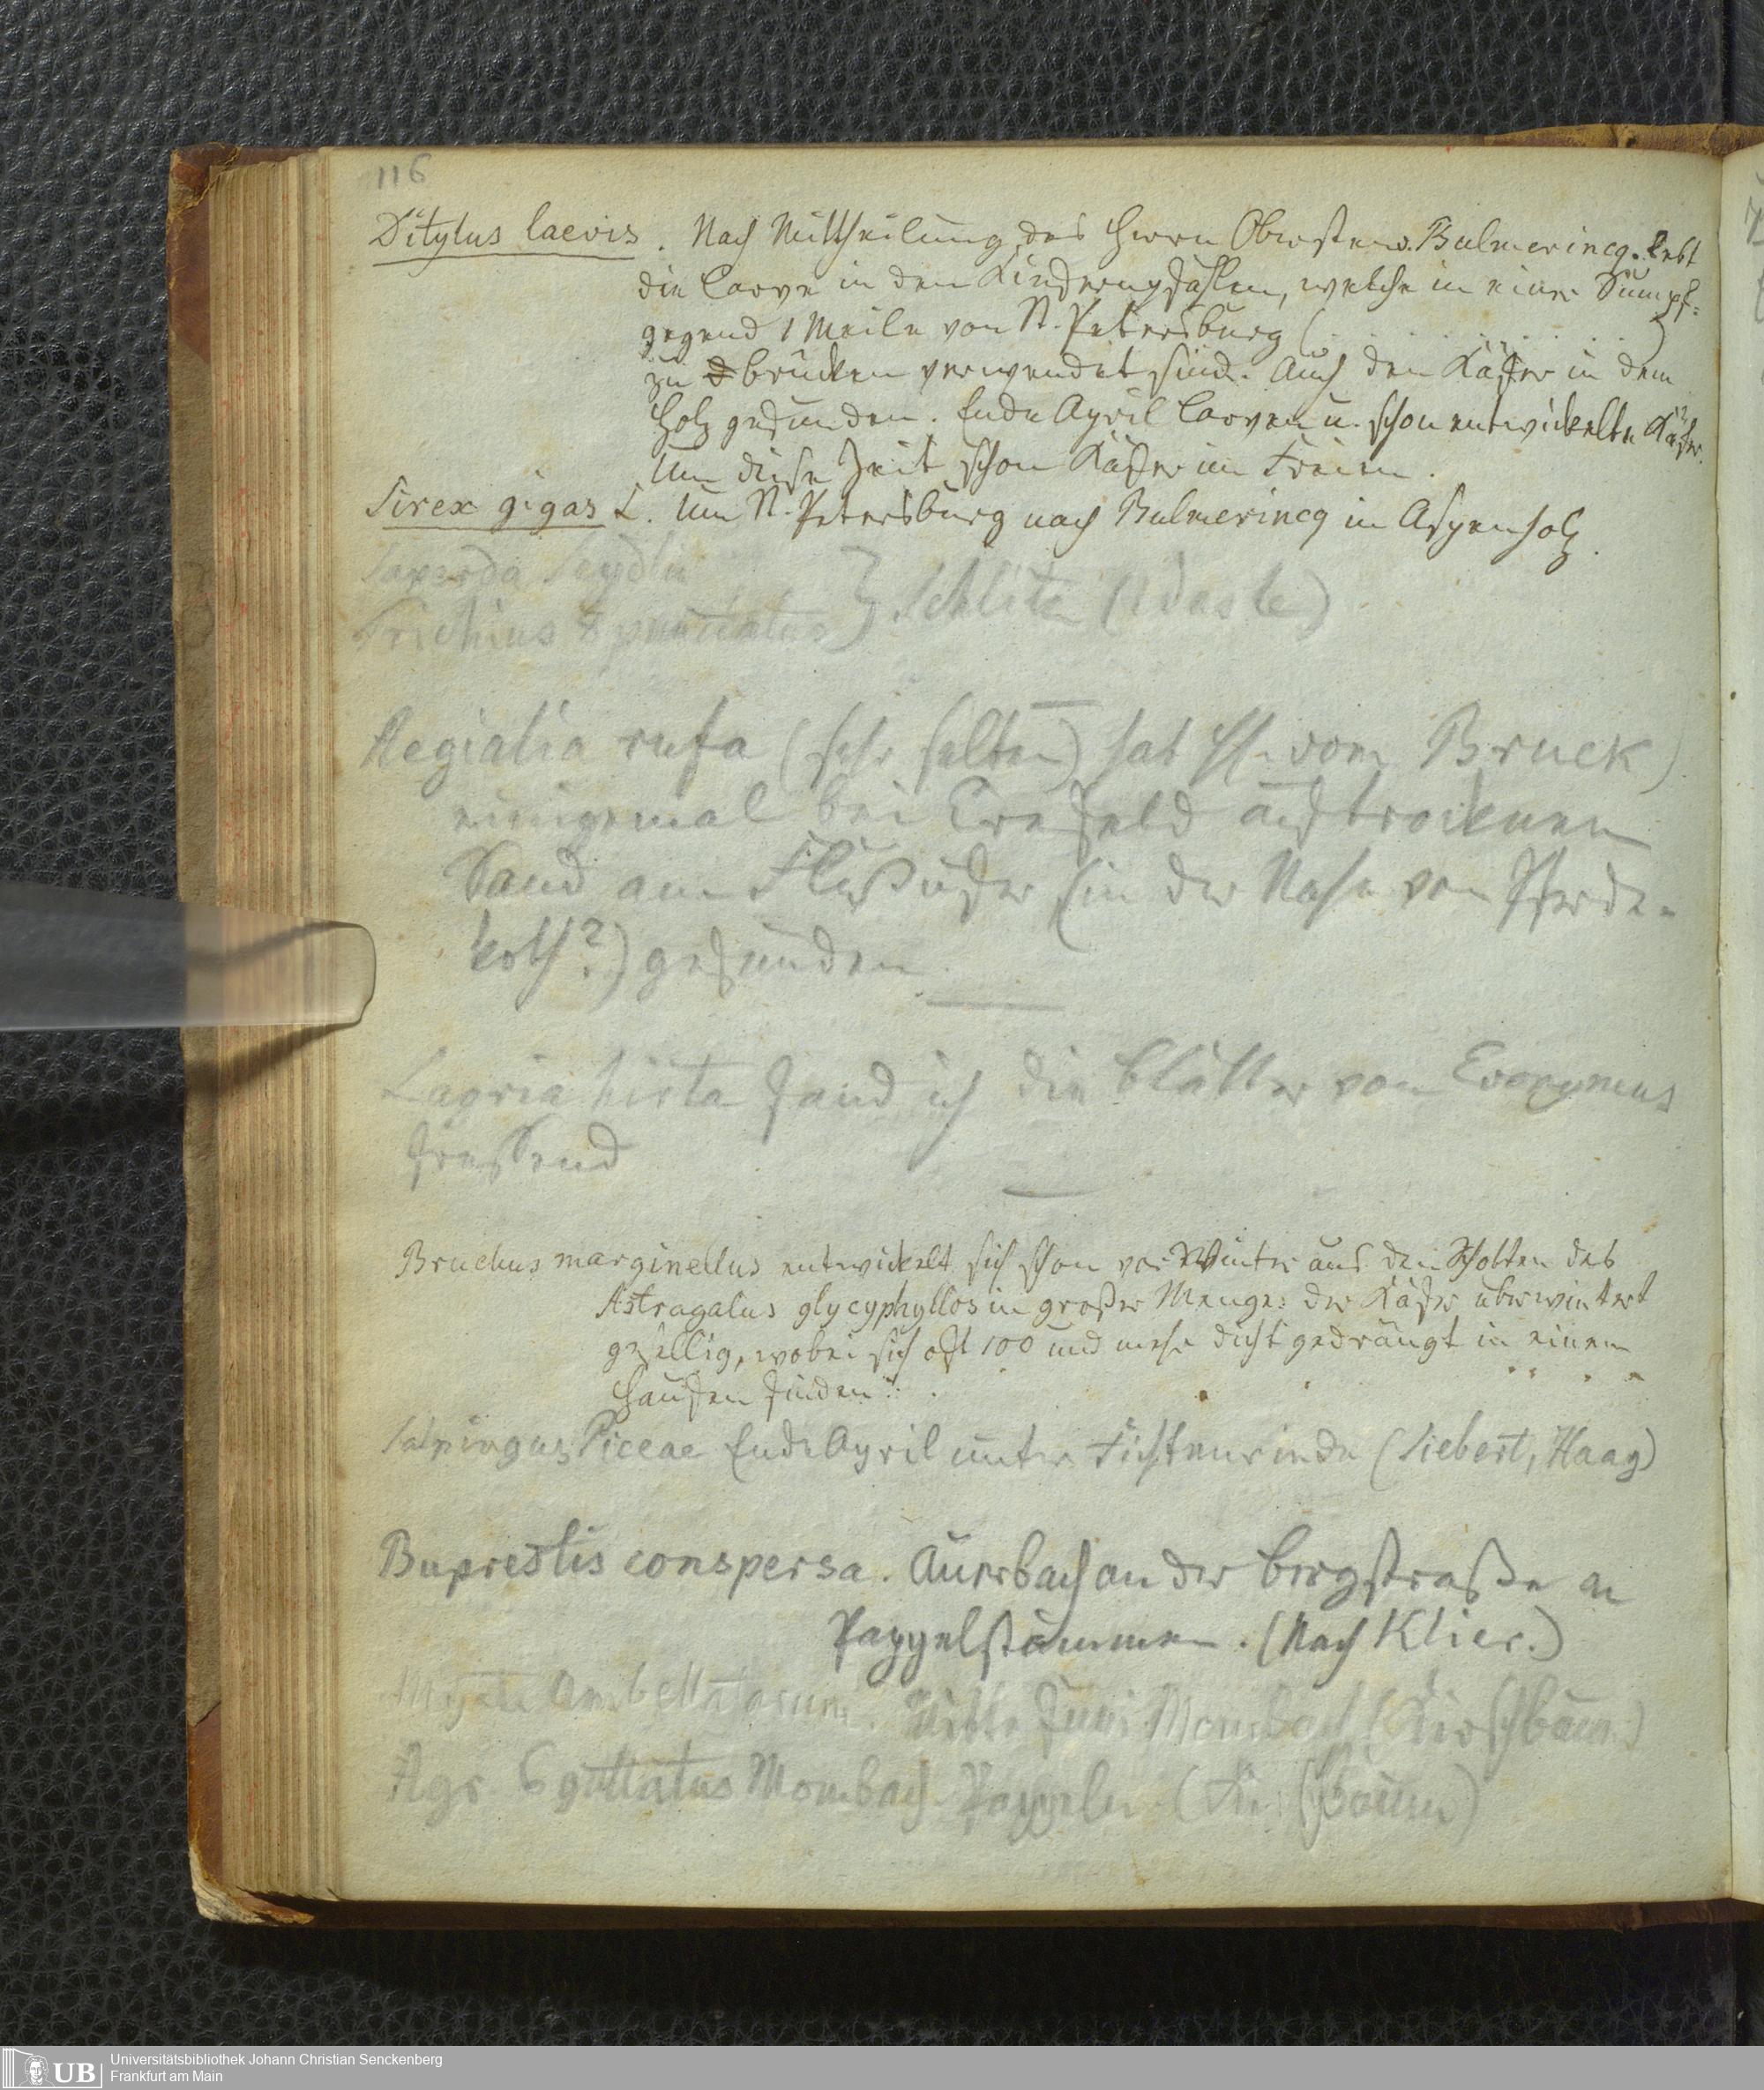 116
Ditylus laevis. Nach Mittheilung des Herrn Obersten v. Bulmerincq. lebt
die Larve in den Kiefernpfählen, welche in einer Sumpf-
gegend 1 Meile von St. Petersburg (. . . . . . . .)
zu Brücken verwendet sind. Auch den Käfer in dem
Holz gefunden. Ende April Larven u. schon entwickelte Käfer.
Um diese Zeit schon Käfer im Freien.
Sirex gigas L. Um St. Petersburg nach Bulmerincq in Aspenholz.
Saperda Seydlii
Trichius 8 punctatus } Schlitz
Aegialia rufa (sehr selten) hat Hr. vom Bruck
einigemal bei Crefeld auf trockenem
Sand am Flußufer (in der Nähe von Pferde-
koth?) gefunden.
Lagria hirta fand ich die Blätter von Evonymus
fressend
Bruchus marginellus entwickelt sich schon vor Winter aus den Schotten des
Astragalus glycyphyllos in großer Menge: der Käfer überwintert
gesellig, wobei sich oft 100 und mehr dicht gedrängt in einem
Haufen finden.
Salpingus Piceae Ende April unter Fichtenrinde (Siebert, Haag)
Buprestis conspersa. Auerbach an der Bergstraße an
Pappelstämmen. (Nach Klier.)
Umbellatarum. Mitte Juni Mombach (Kirschbaum)
Agr. 6 guttatus Mombach Pappeln (Kirschbaum)
Universitätsbibliothek Johann Christian Senckenberg
Frankfurt am Main
UB